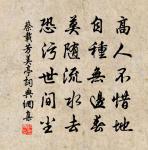 高人不惜地
自種無邊春
莫隨流水去
恐污世間塵
蔡戡芳美亭詞典網集